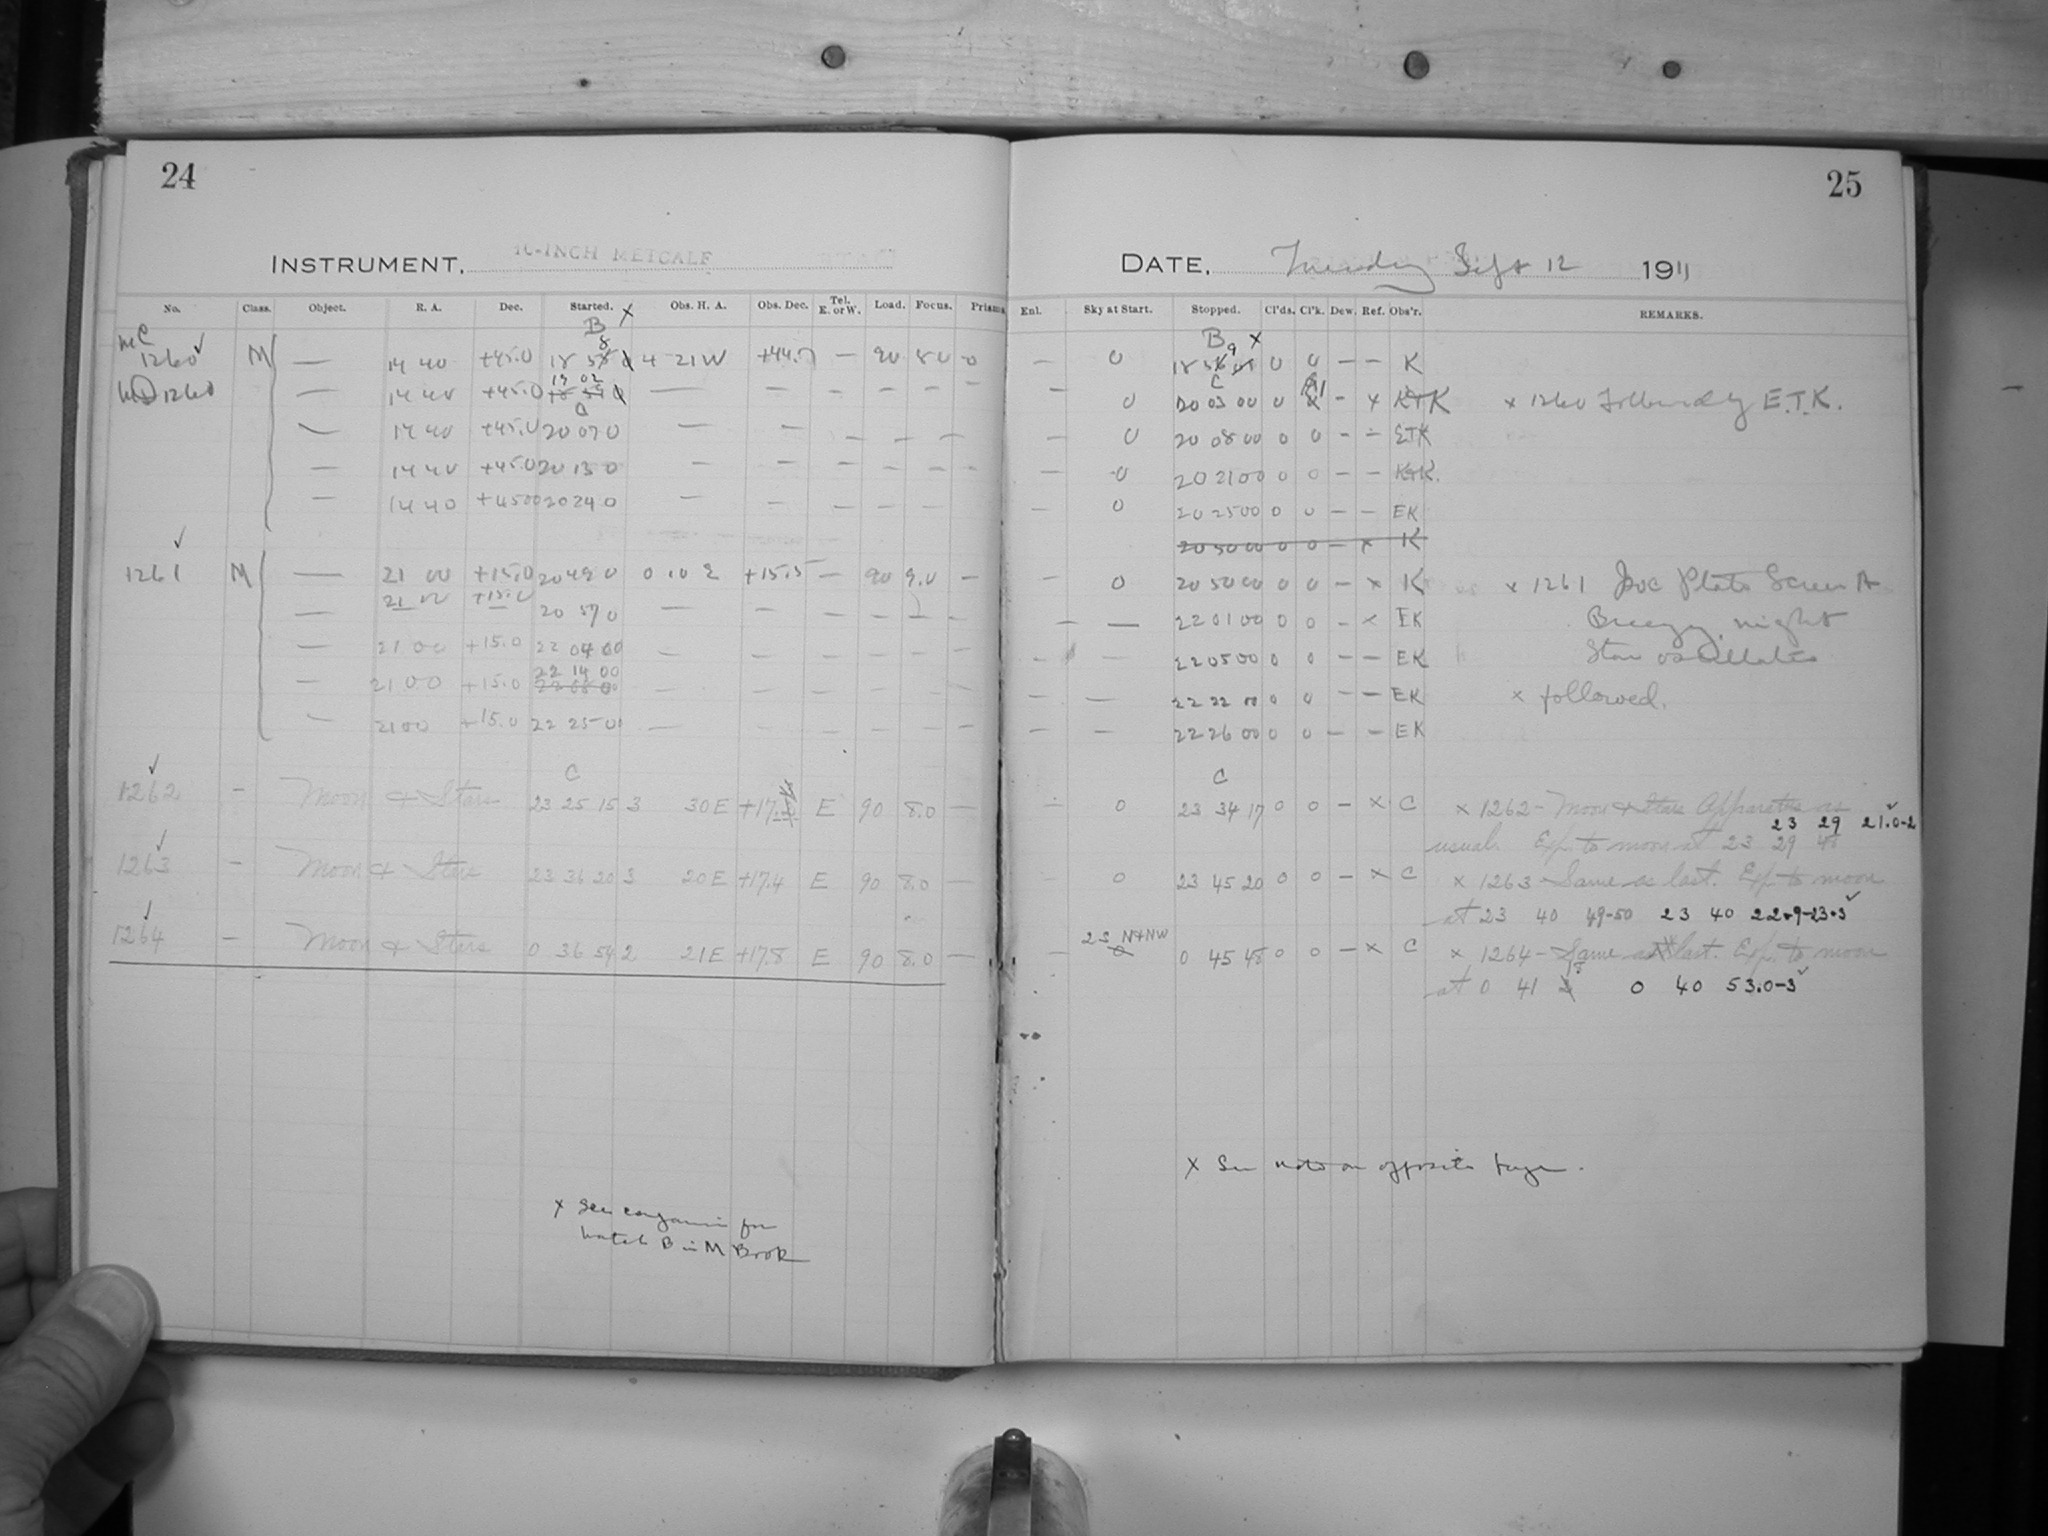 24
INSTRUMENT. 10-INCH METCALF
No. Class. Object. R. A. Dec. Started. Obs. H. A. Obs. Dec. Tel. E. or W. Load. Focus. Prisms
B x
MC 1260 ✓ M — 14 40 +45.0 18 4 21 W +44. — 90 8.0
1260 14 40 +45.0 19 02 — — — — — —
C
— 14 40 +45.0 20 07 0 — — — — —
— 14 40 +45.0 20 13 0 — — — — — —
— 14 40 +45 00 20 24 0 — — — — — —
1261 ✓ M — 21 00 +15.0 20 49 0 0 10 E +15.5 — 90 9.0 —
— 21 00 +15.0 20 57 0 — — — — —
— 21 00 +15.0 22 04 00 — — — — — —
22 14 00
— 21 00 +15.0 22 08 00 — — — — — —
— 21 00 +15.0 22 25 00 — — — — — —
C
1262 ✓ — Moon & Stars 23 25 15 3 30 E +17. E 90 8.0 —
1263 ✓ — Moon & Stars 23 36 20 3 20 E +17.4 E 90 8.0 —
1264 ✓ — Moon & Stars 0 36 54 2 21 E +17.8 E 90 8.0 —
x See comparison for
watch B in M Book
25
DATE. Tuesday Sept 12 1911
Enl. Sky at Start. Stopped. Cl'ds. Cl'k. Dew. Ref. Obs'r. REMARKS.
B x
— 0 18 0 0 — — K
C
— 0 20 03 00 0 — x ETK x 1260 Followed by E.T.K.
— 0 20 08 00 0 0 — — ETK
— 0 20 21 00 0 0 — — ETK.
— 0 20 25 00 0 0 — — EK
20 50 00 0 0 — x K
— 0 20 50 00 0 0 — x K x 1261 Plate Screen A
— — 22 01 00 0 0 — x EK Breezy night
— — 22 05 00 0 0 — — EK Star oscillates
— — 22 22 00 0 0 — — EK x followed.
— — 22 26 00 0 0 — — EK
C
— 0 23 34 17 0 0 — x C x 1262 – Moon & Stars Apparatus as
23 29 21.0-2 ✓
usual. Exp. to moon at 23 29 48
— 0 23 45 20 0 0 — x C x 1263 – Same as last. Exp. to moon
at 23 40 49-50 23 40 22.9-23.3 ✓
2 S N+NW
— 0 45 48 0 0 — x C x 1264 – Same as last. Exp. to moon
at 0 41 0 40 53.0-3 ✓
x See note on opposite page.